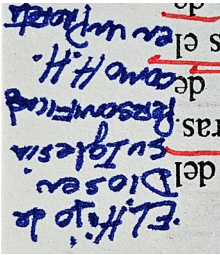 ·EL Hijo de
Dios en
su Iglesia
PERSONIFICAD
como H.H.
en un Profeta
del
ras.
de
s el